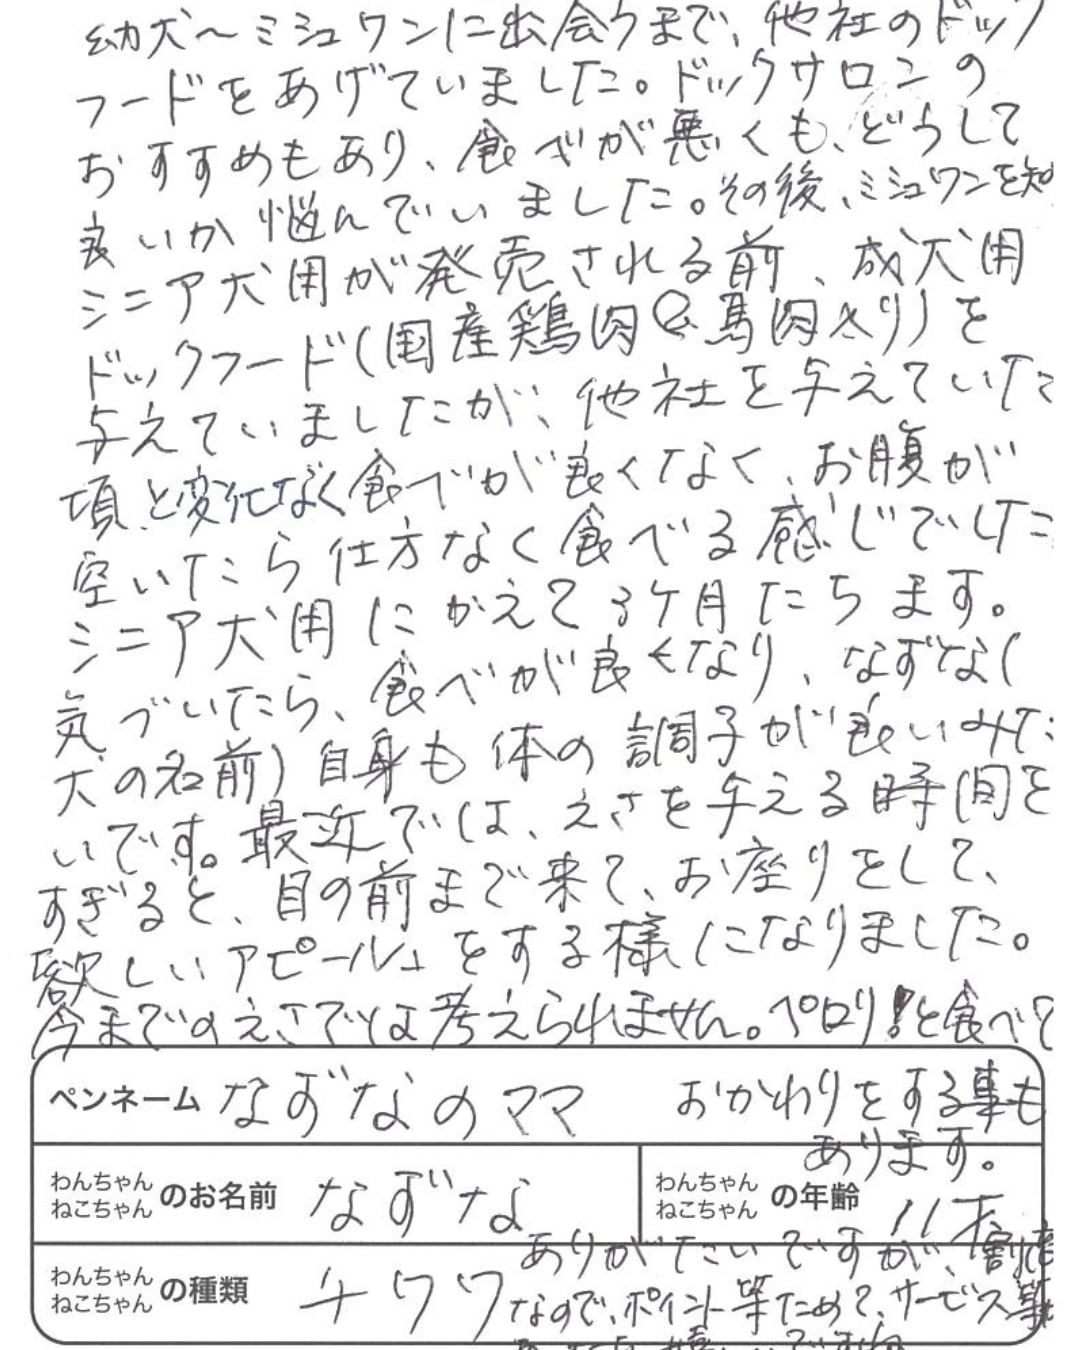 幼犬～ミシュワンに出会うまで、他社のドック
フードをあげていました。ドックサロンの
おすすめもあり、食べが悪くも、どうして
良いか悩んでいました。その後、ミシュワンを知
シニア犬用が発売される前、成犬用
ドックフード(国産鶏肉&馬肉入り)を
与えていましたが、他社を与えていた
頃と変化なく食べが良くなく、お腹が
空いたら仕方なく食べる感じでした
シニア犬用にかえて3ケ月たちます。
気づいたら、食べが良くなり、なずな(
犬の名前)自身も体の調子が良いみた
いです。最近では、えさを与える時間を
すぎると、目の前まで来て、お座りをして、
「欲しいアピール」をする様になりました。
今までのえさでは考えられません。ペロリ!と食べて
ペンネーム なずなのママ おかわりをする事も
あります。
わんちゃん ねこちゃん のお名前 なずな
わんちゃん ねこちゃん の年齢 11才
ありがたいですが、割高
わんちゃん ねこちゃん の種類 チワワ
なので、ポイント等ためて、サービス等
嬉しいですね